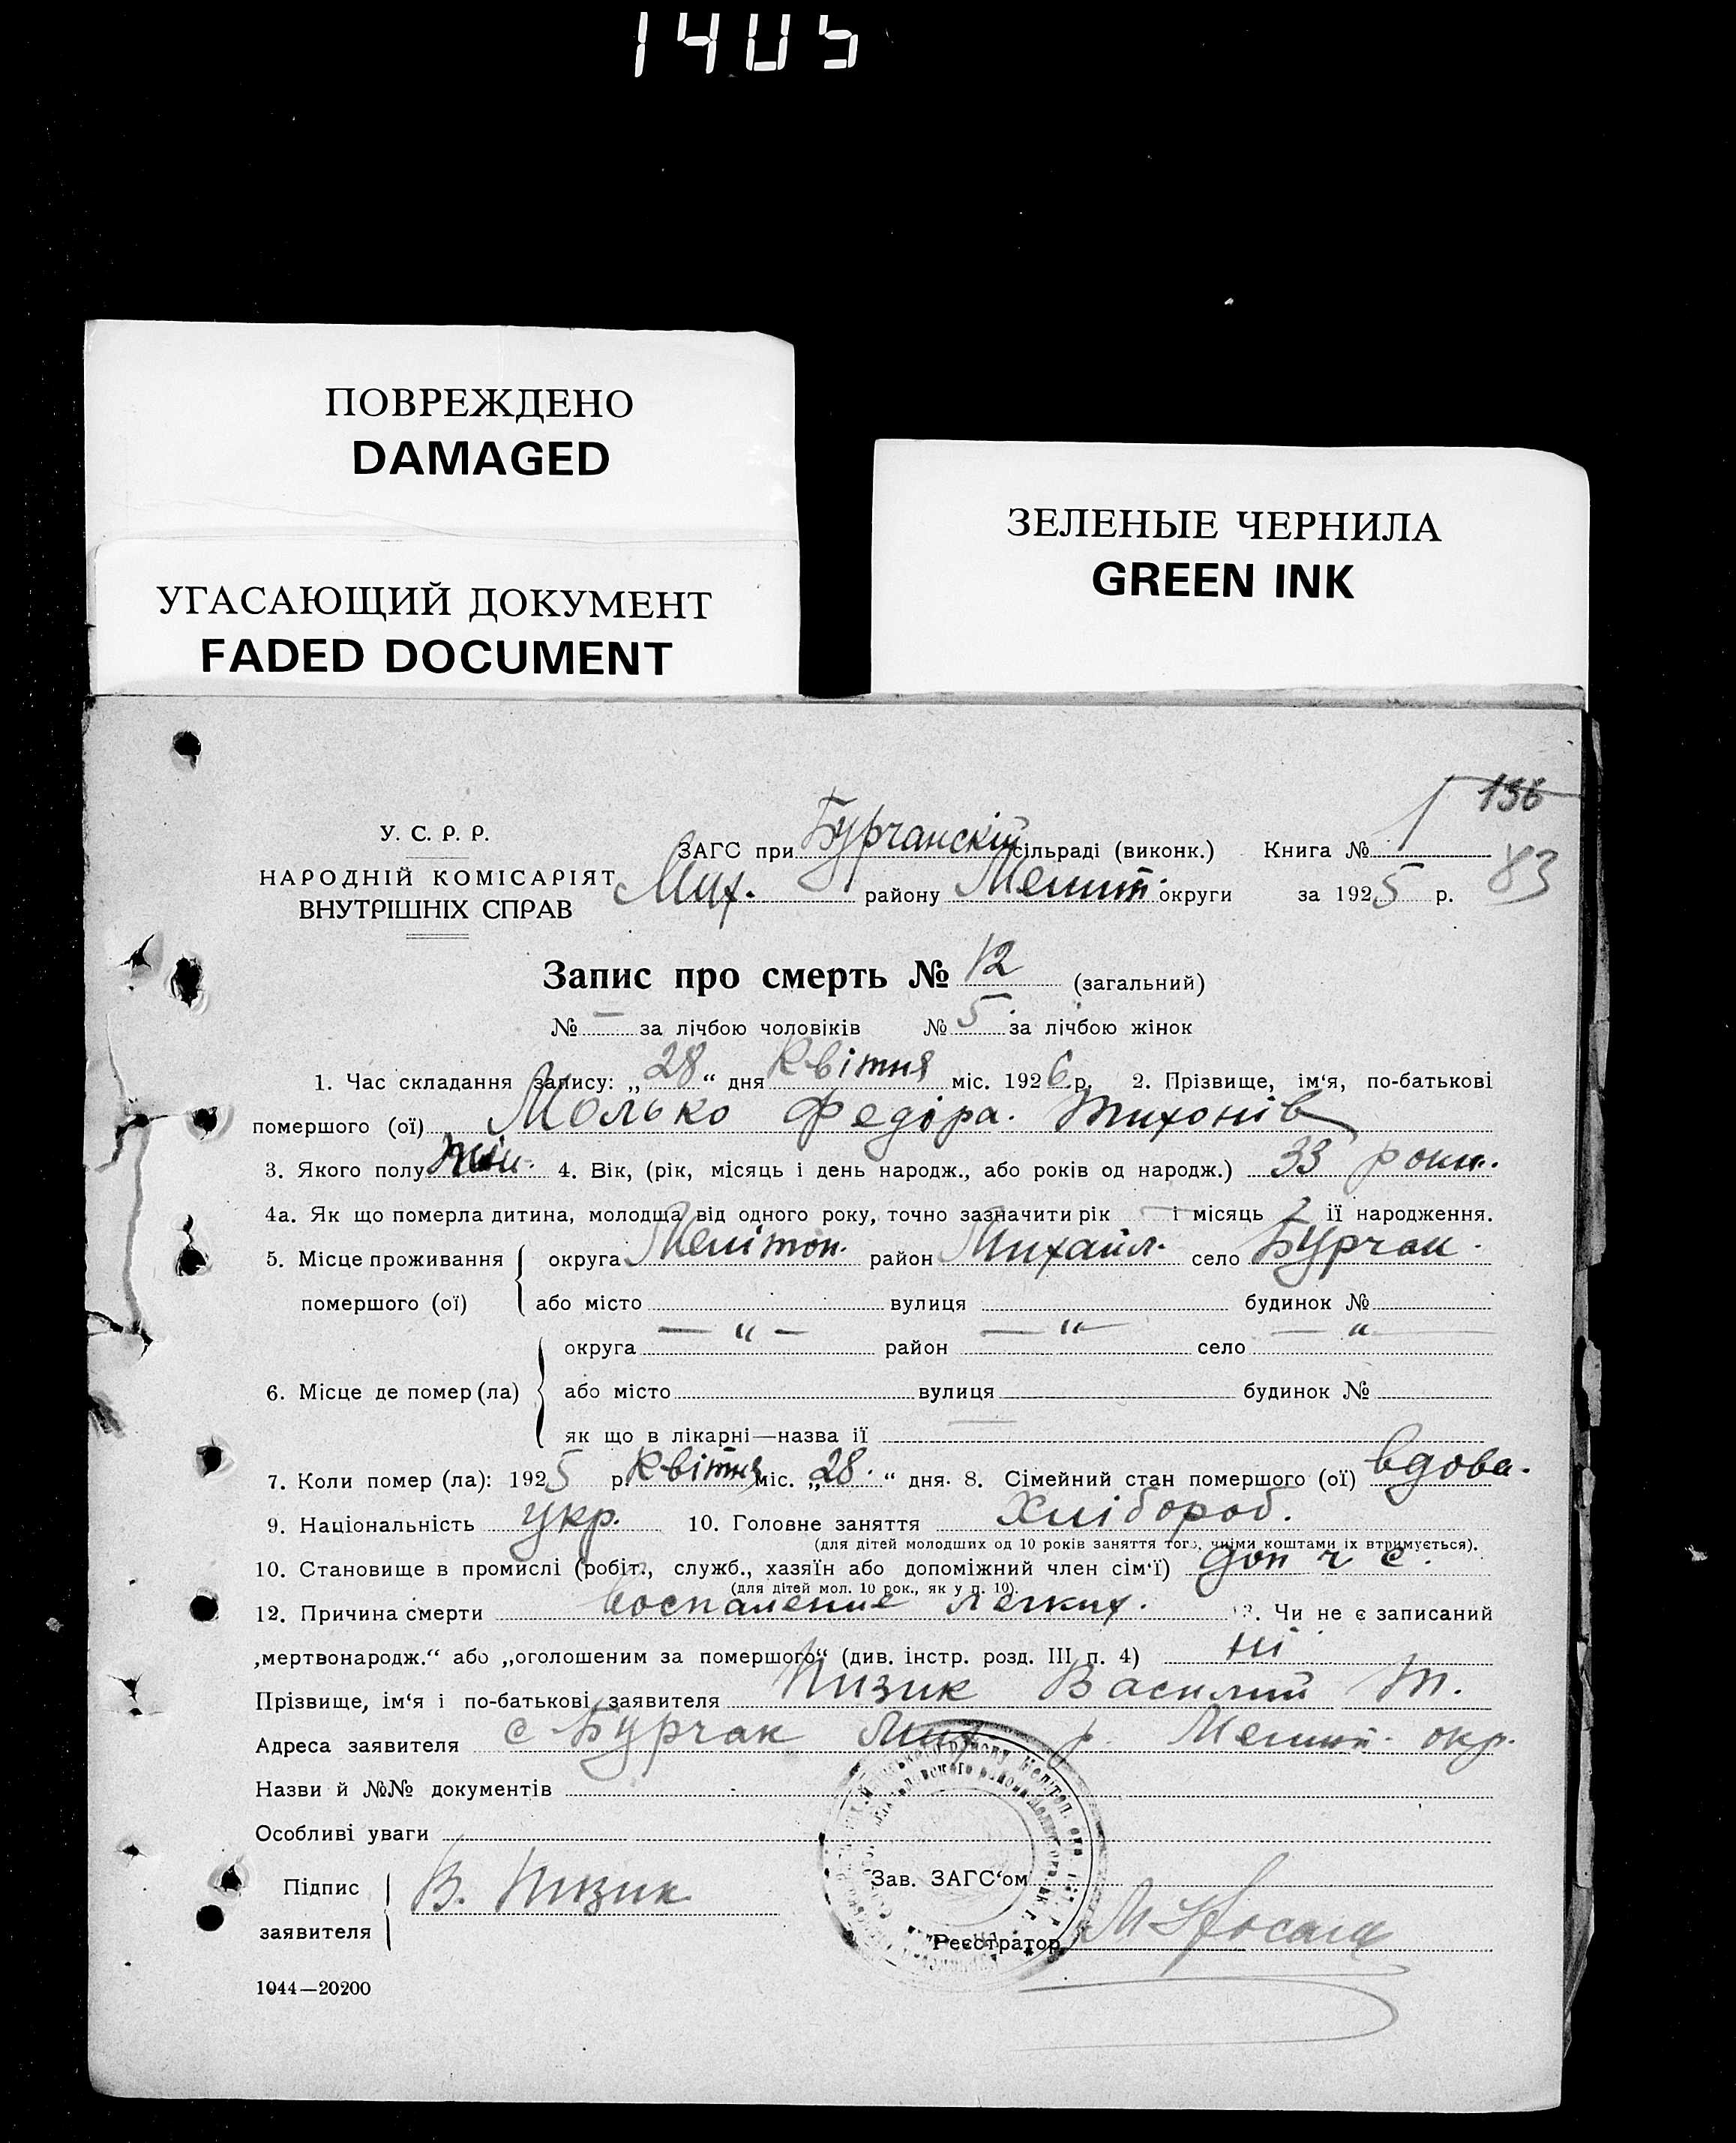 1405
ПОВРЕЖДЕНО
DAMAGED
УГАСАЮЩИЙ ДОКУМЕНТ
FADED DOCUMENT
ЗЕЛЕНЫЕ ЧЕРНИЛА
GREEN INK
136
У. С. Р. Р.
НАРОДНІЙ КОМІСАРІЯТ
ВНУТРІШНІХ СПРАВ
ЗАГС при Бурчанскій сільраді (виконк.) Книга № 1
Мих. району Мелит. округи за 1925 р. 83
Запис про смерть № 12 (загальний)
№ — за лічбою чоловіків № 5 за лічбою жінок
1. Час складання запису: „28“ дня Квітня міс. 1926 р. 2. Прізвище, ім‘я, по-батькові
помершого (ої) Молько Федіра. Тихонів
3. Якого полу жін. 4. Вік, (рік, місяць і день народж., або років од народж.) 33 роки.
4а. Як що померла дитина, молодща від одного року, точно зазначити рік — і місяць ії народження.
5. Місце проживання округа Мелітоп. район Михайл. село Бурчак.
помершого (ої) або місто вулиця будинок №
округа — “ — район — “ — село — “ —
6. Місце де помер (ла) або місто вулиця будинок №
як що в лікарні—назва її —
7. Коли помер (ла): 1925 р. Квітня міс. „28.“ дня. 8. Сімейний стан помершого (ої) вдова.
9. Національність укр. 10. Головне заняття Хлібороб.
(для дітей молодших од 10 років заняття того, чиїми коштами їх втримується).
10. Становище в промислі (робіт., служб., хазяїн або допоміжний член сім‘ї) доп ч с.
(для дітей мол. 10 рок., як у п. 10).
12. Причина смерти воспаление легких. 13. Чи не є записаний
„мертвонародж.“ або „оголошеним за помершого“ (див. інстр. розд. III п. 4) ні
Прізвище, ім‘я і по-батькові заявителя Пизик Василий Т.
Адреса заявителя с Бурчак Мих р. Мелит. окр.
Назви й №№ документів
Особливі уваги
Підпис
заявителя В. Пизик
Зав. ЗАГС‘ом
Реєстратор
1044—20200